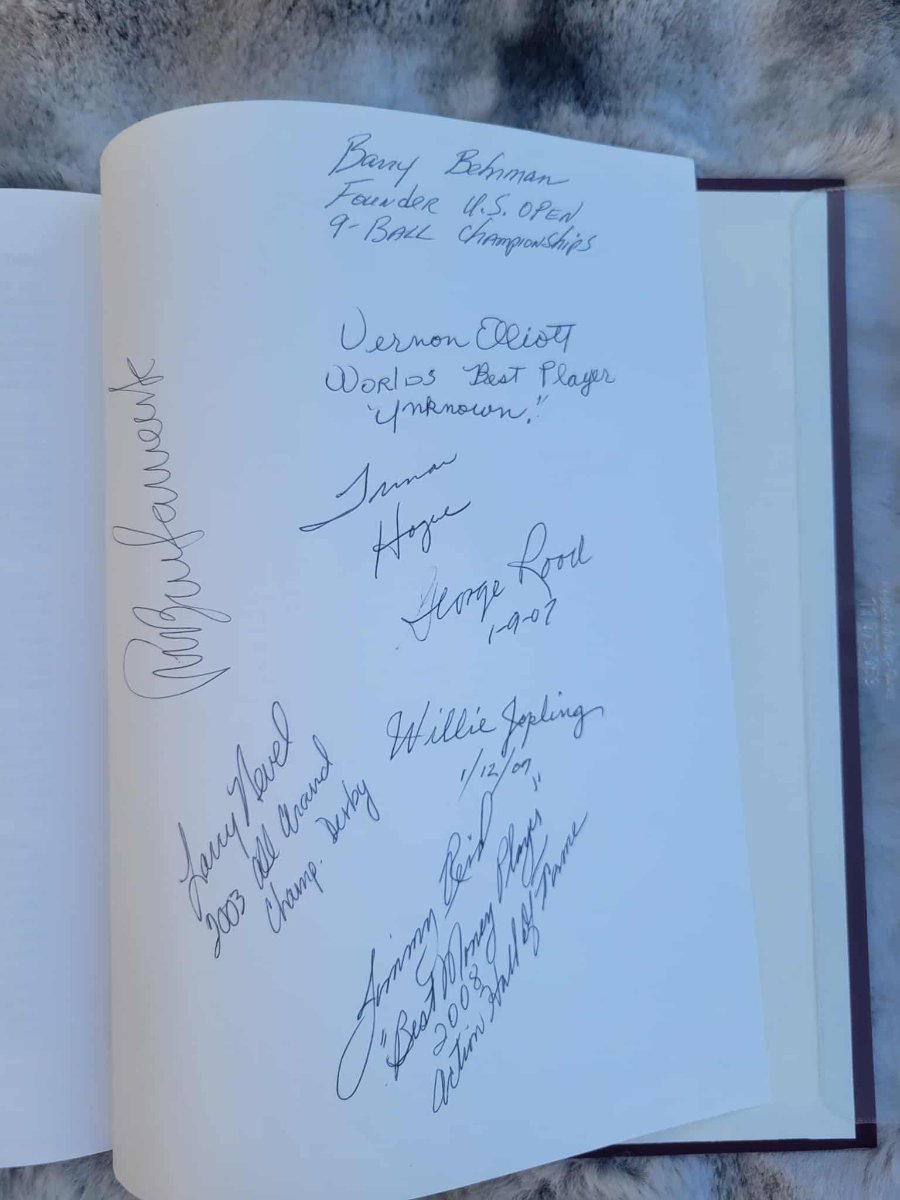 Barry Behrman
Founder U.S. OPEN
9-BALL Championships
Vernon Elliott
Worlds Best Player
"Unknown."
Truman
Hogue
George Rood
1-9-07
Willie Jopling
1/12/07
Larry Nevel
2003 All Around
Champ. Derby
Jimmy Reid
"Best Money Player"
2008
Action Hall of Fame